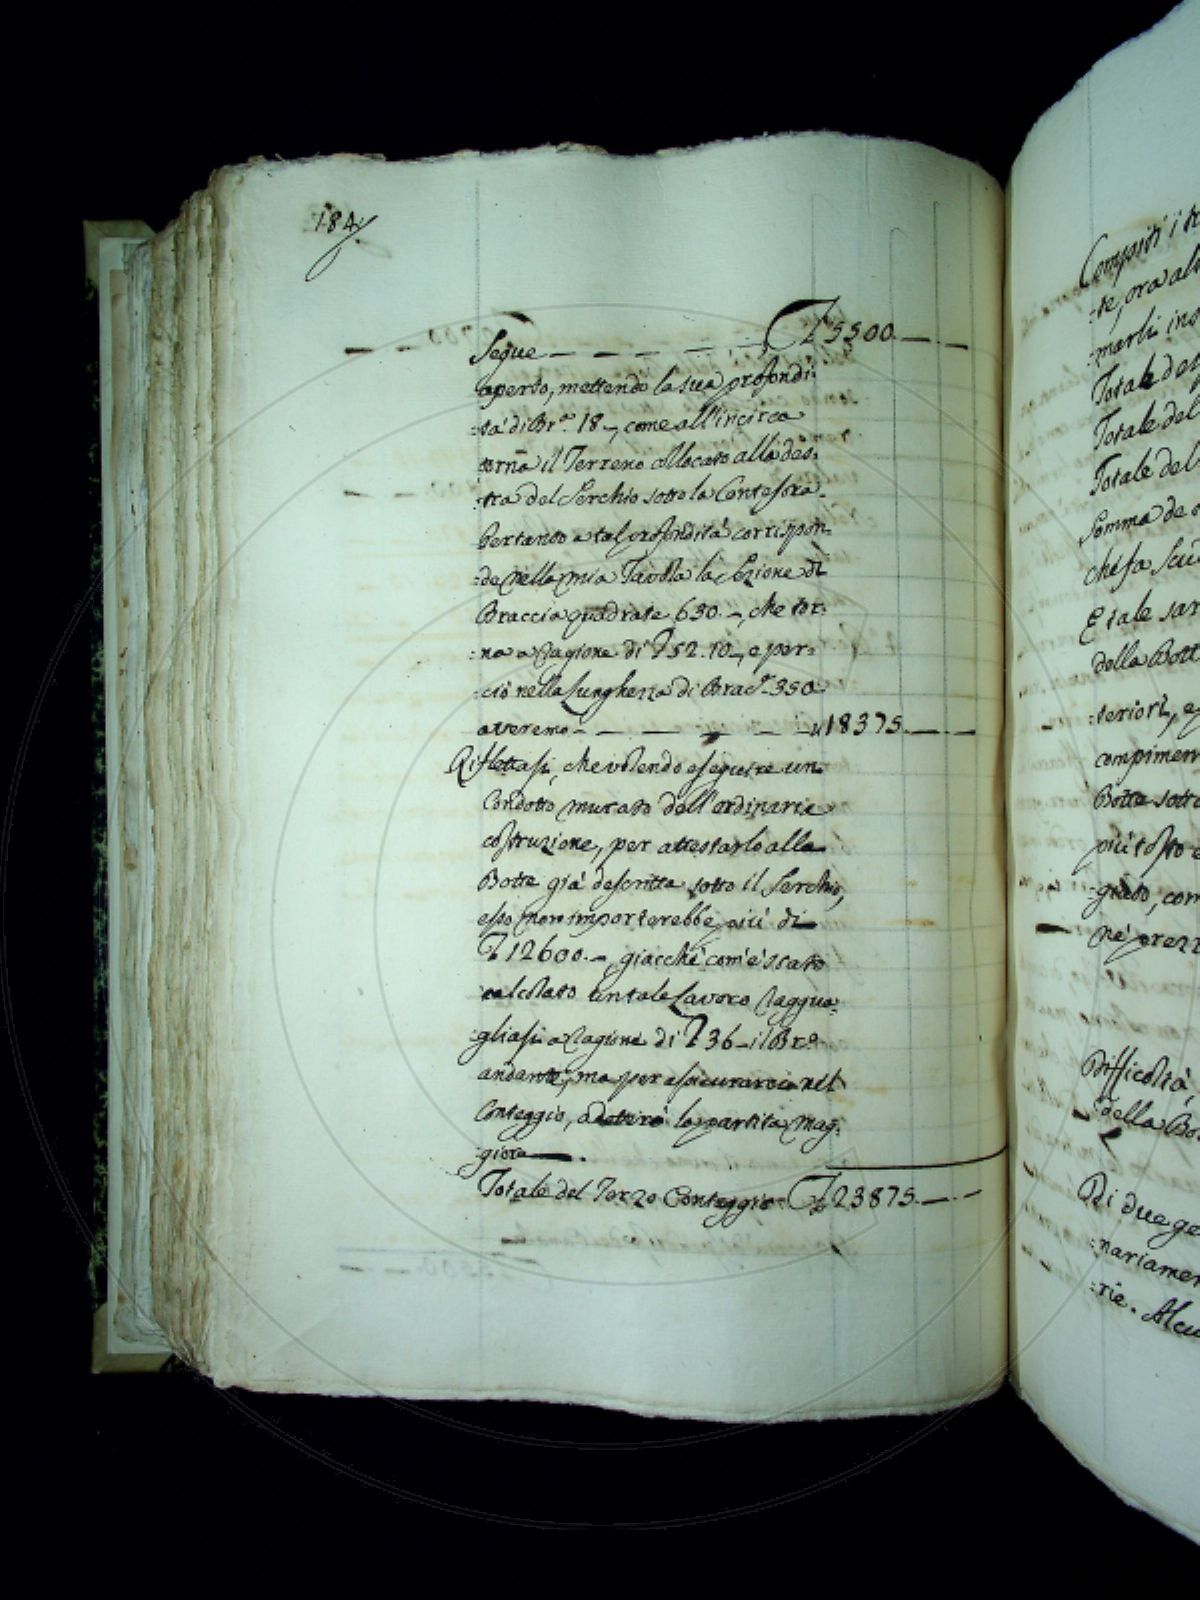 184
Segue — — — — — ₮ 5500. — —
aperto, mettendo la sua profondi:
:tà di Br.ª 18 –, come all'incirca
torna il Terreno collocato alla des:
:tra del Serchio sotto la Contesora.
Pertanto a tal profondità corrispon:
:de nella mia Tavola la Sezione di
Braccia quadrate 630. –, che tor:
:na a ragione di ₮ 52. 10 –, e per:
:ciò nella lunghezza di Brac.ª 350
averemo — — — — — „ 18375. — —
Riflettasi, che volendo eseguire un
Condotto murato dell'ordinaria
costruzione, per attestarlo alla
Botte già descritta sotto il Serchio,
esso non importerebbe più di
₮ 12600. –, giacchè com'è stato
calcolato un tale Lavoro raggua:
gliasi a ragione di ₮ 36 – il Br.º
andante; ma per assicurarci nel
Conteggio, adotterò la partita mag:
:giore —.
Totale del Terzo Conteggio ₮ 23875. — —
Compositi i
:te, ora
:marli
Totale
Totale del
Totale del
Somma de
che fa
E tale
della Bott
:teriori,
compimen
Botte sotto
più tosto
:giato, com
nè prezz
Difficoltà,
della Bo
Di due ge
:nariamen
:rie. Alcu